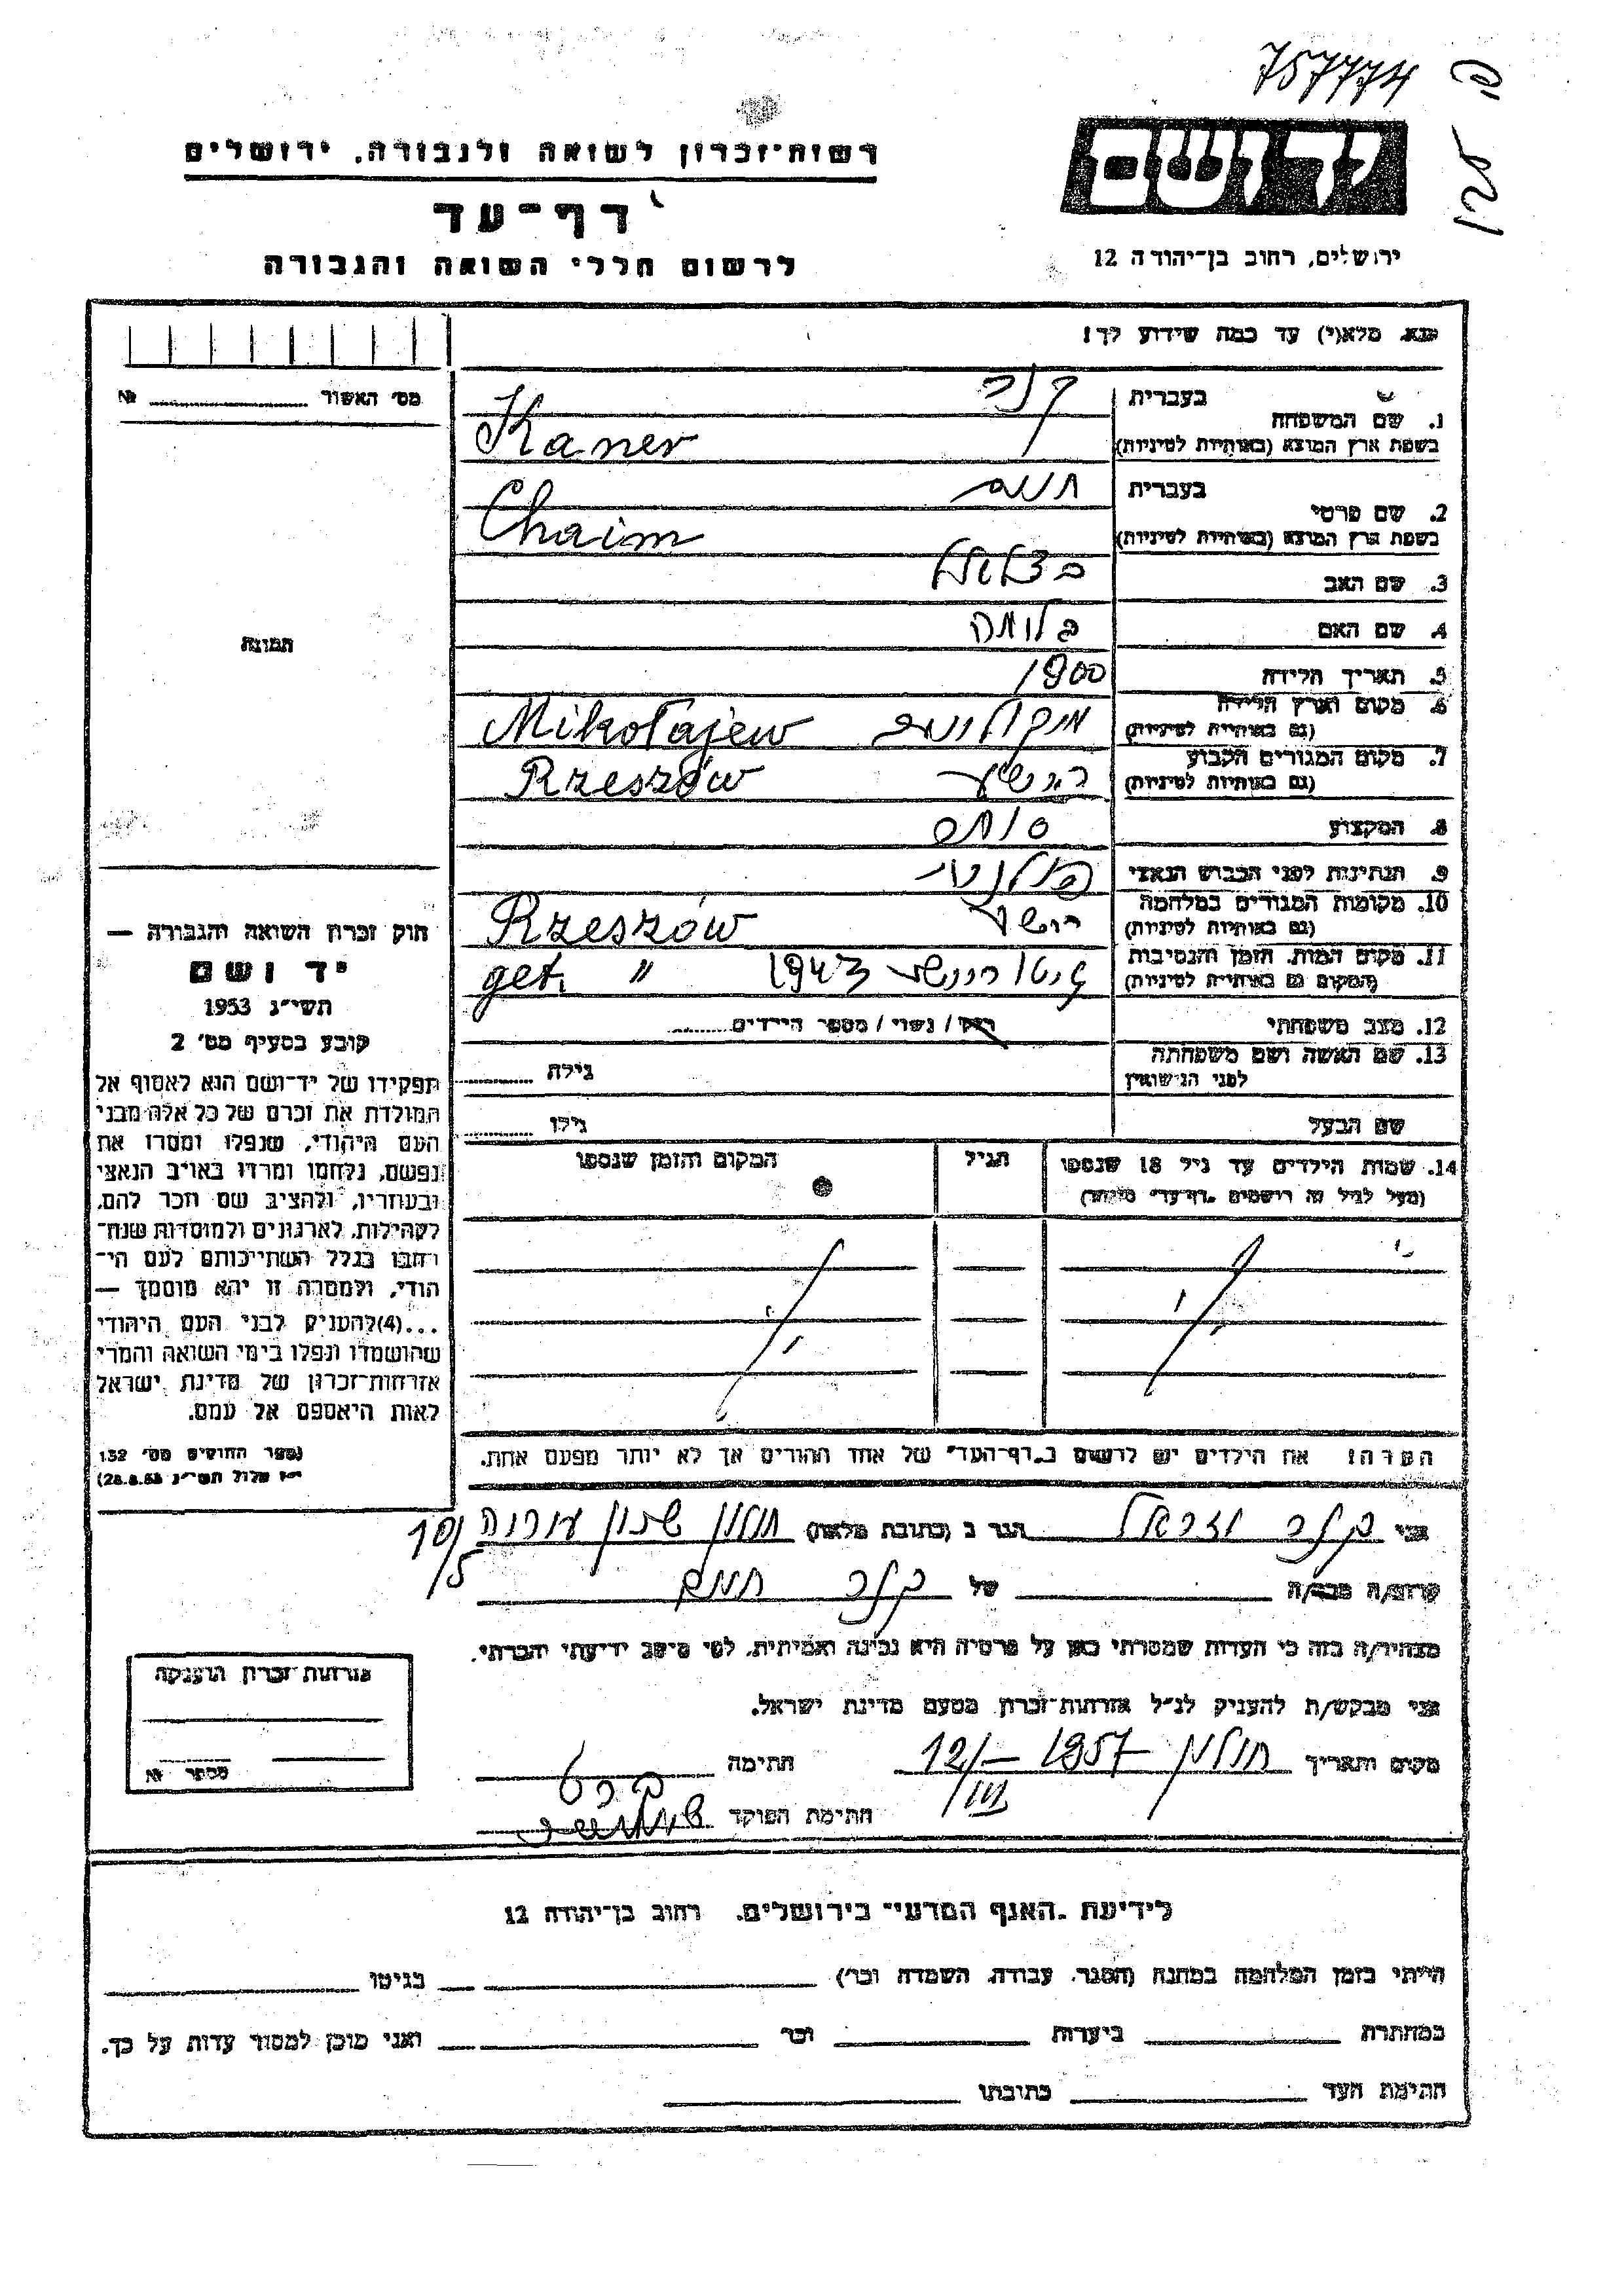 757774
יד ושם
רשות־זכרון לשואה ולגבורה, ירושלים
דף־עד
לרשום חללי השואה והגבורה
ירושלים, רחוב בן־יהודה 12
נא מלא(י) עד כמה שידוע לך!
מס׳ האשור № 
תמונה
1. שם המשפחה
בעברית קנר
בשפת ארץ המוצא (באותיות לטיניות) Kaner
2. שם פרטי
בעברית חיים
בשפת ארץ המוצא (באותיות לטיניות) Chaim
3. שם האב בצלאל
4. שם האם בלומה
5. תאריך הלידה 1900
6. מקום וארץ הלידה
(גם באותיות לטיניות) Mikołajew
7. מקום המגורים הקבוע
(גם באותיות לטיניות) Rzeszów
8. המקצוע סוחר
9. הנתינות לפני הכבוש הנאצי
10. מקומות המגורים במלחמה
(גם באותיות לטיניות) Rzeszów
11. מקום המות, הזמן והנסיבות
(המקום גם באותיות לטיניות) גיטו 1943 get. "
12. מצב משפחתי רווק / נשוי / מספר הילדים
13. שם האשה ושם משפחתה
לפני הנישואין גילה
שם הבעל גילו
14. שמות הילדים עד גיל 18 שנספו הגיל המקום והזמן שנספו
(מעל לגיל זה רושמים „דף־עד״ מיוחד)
הערה! את הילדים יש לרשום ב„דף־העד״ של אחד ההורים אך לא יותר מפעם אחת.
חוק זכרון השואה והגבורה —
יד ושם
תשי״ג 1953
קובע בסעיף מס׳ 2
תפקידו של יד־ושם הוא לאסוף אל
המולדת את זכרם של כל אלה מבני
העם היהודי, שנפלו ומסרו את
נפשם, נלחמו ומרדו באויב הנאצי
ובעוזריו, ולהציב שם וזכר להם,
לקהילות, לארגונים ולמוסדות שנח־
רבו בגלל השתייכותם לעם הי־
הודי, ולמטרה זו יהא מוסמך —
...(4)להעניק לבני העם היהודי
שהושמדו ונפלו בימי השואה והמרי
אזרחות־זכרון של מדינת ישראל
לאות היאספם אל עמם.
(ספר החוקים מס׳ 132
י״ז אלול תשי״ג 28.8.53)
אני הגר ב (כתובת מלאה) חולון
קרוב/ה מכר/ה של חיים
מצהיר/ה בזה כי העדות שמסרתי כאן על פרטיה היא נכונה ואמיתית, לפי מיטב ידיעתי והכרתי.
אני מבקש/ת להעניק לנ״ל אזרחות־זכרון מטעם מדינת ישראל.
מקום ותאריך חולון 12/III 1957 חתימה
חתימת הפוקד
אזרחות זכרון הוענקה
מספר №
לידיעת „האגף המדעי״ בירושלים, רחוב בן־יהודה 12
הייתי בזמן המלחמה במחנה (הסגר, עבודה, השמדה וכו׳) בגיטו
במחתרת ביערות וכו׳ ואני מוכן למסור עדות על כך.
חתימת העד כתובתו